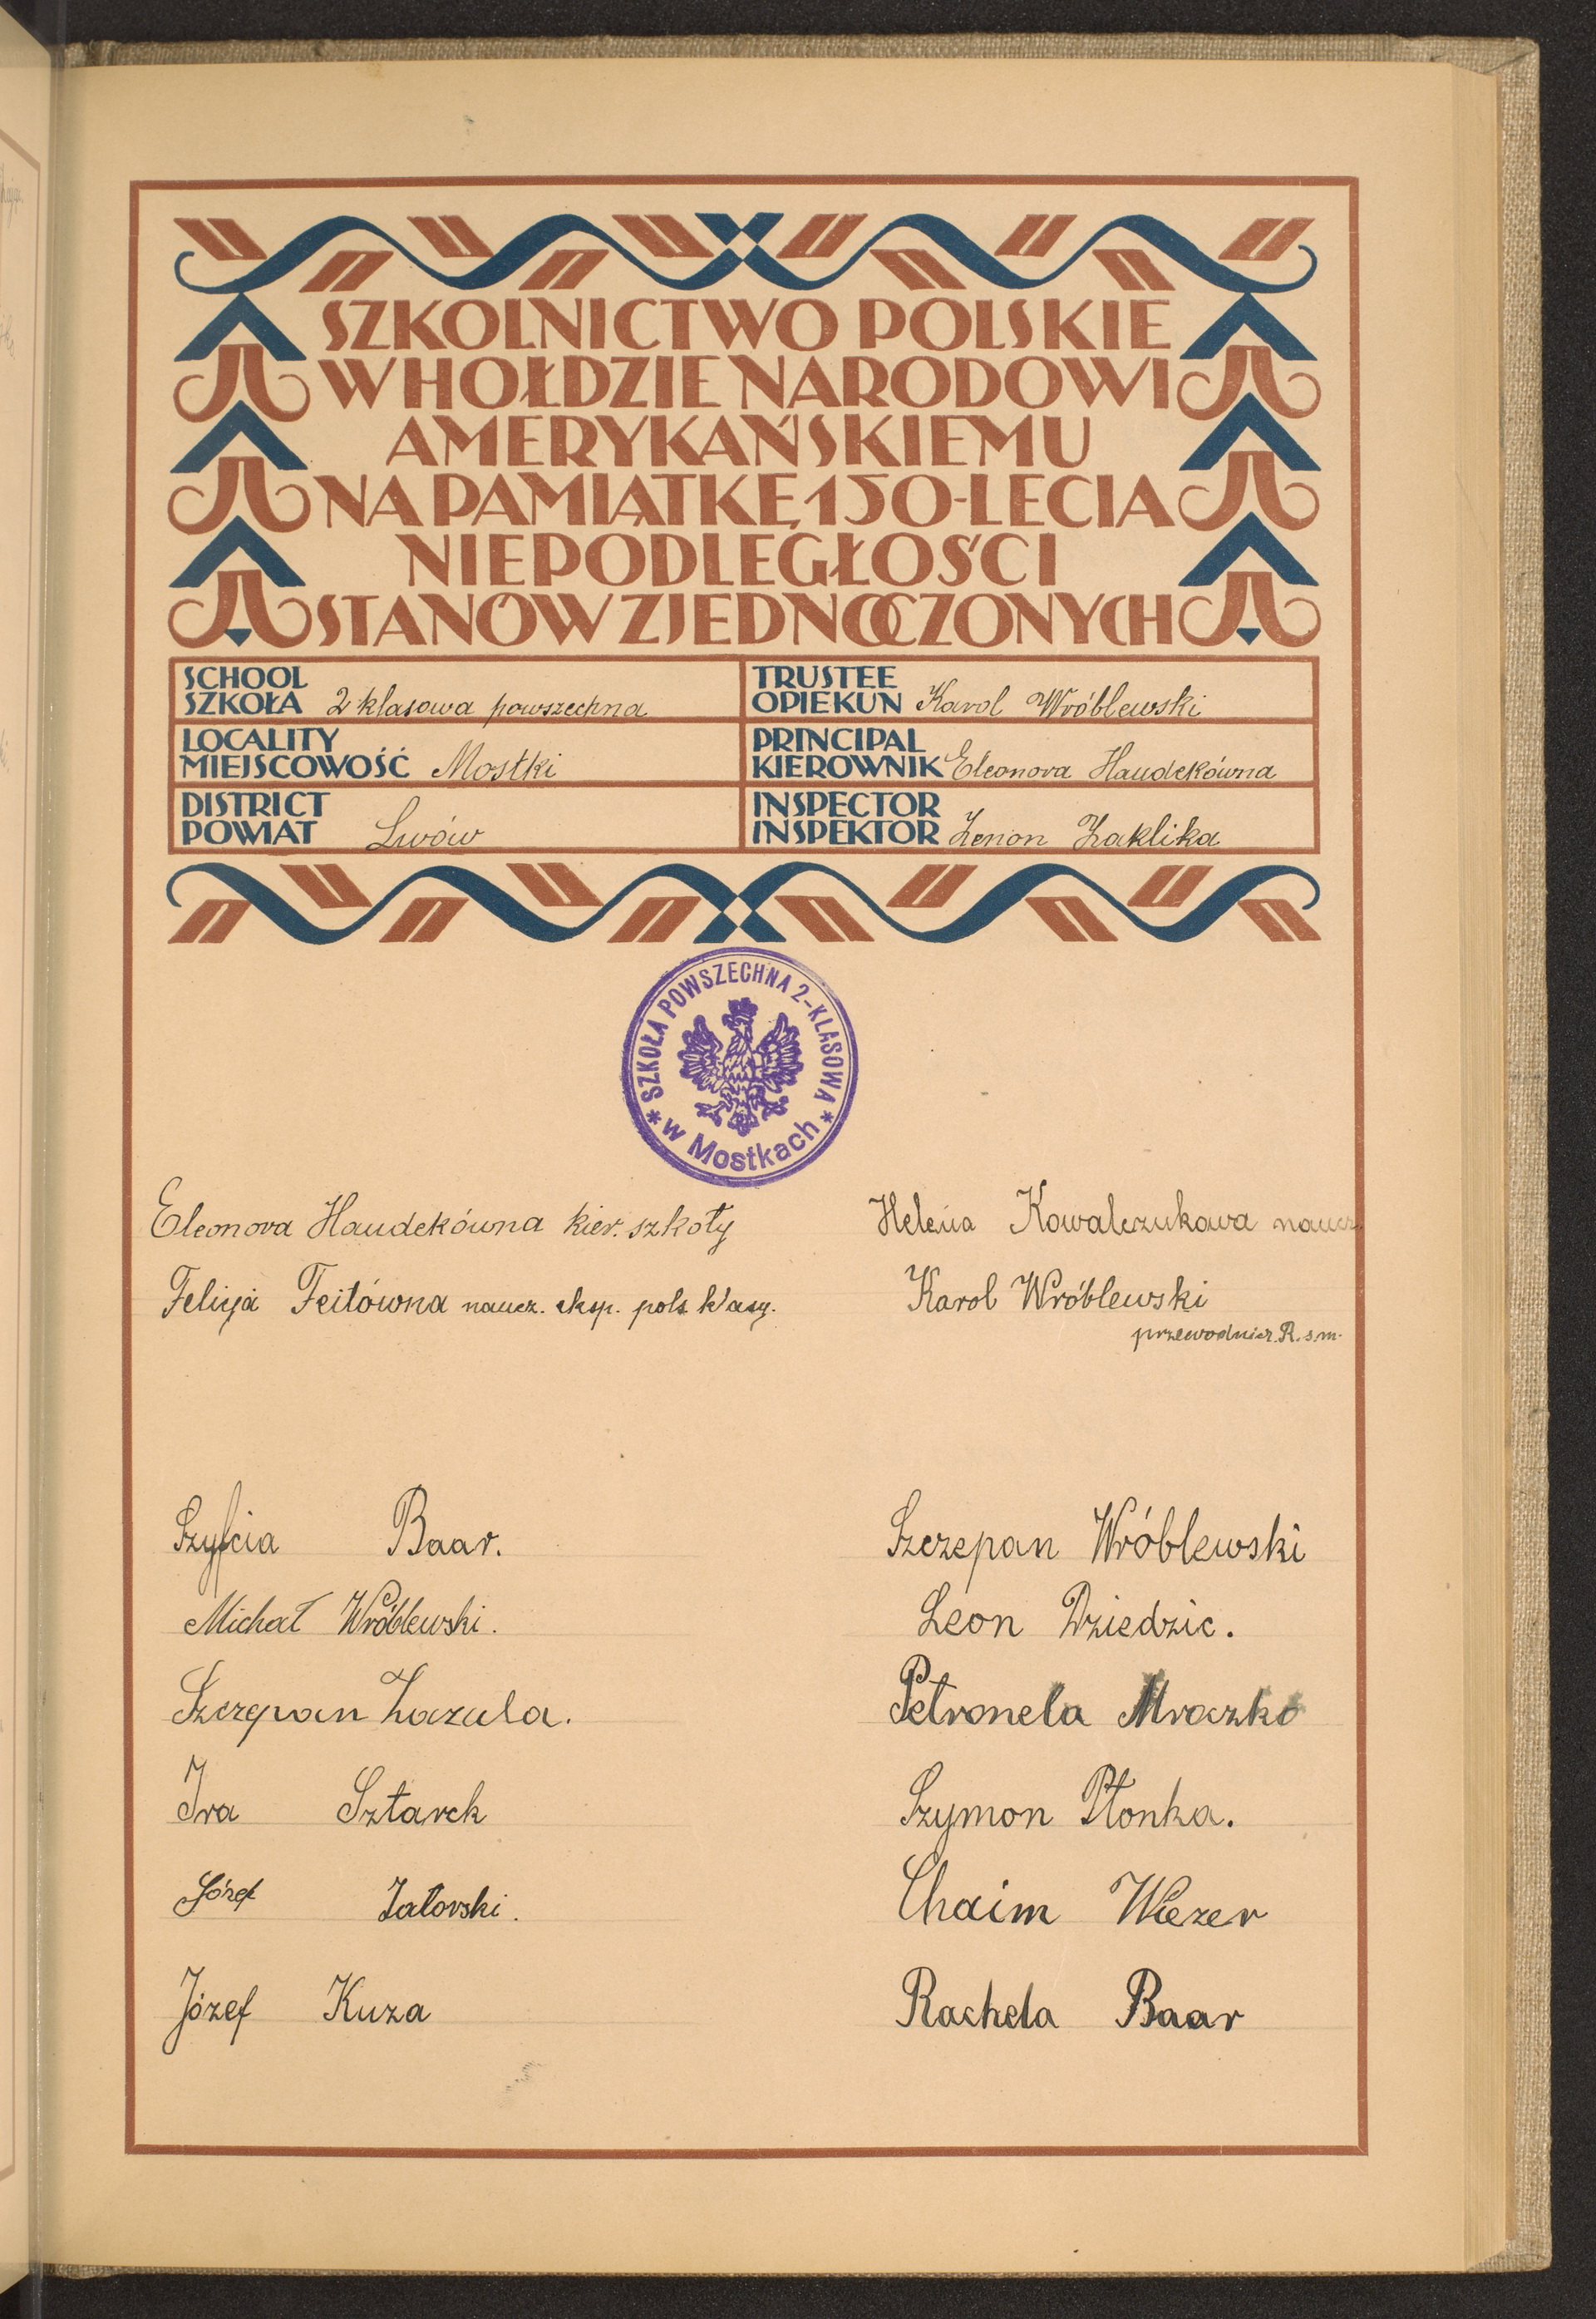 SZKOLNICTWO POLSKIE
W HOŁDZIE NARODOWI
AMERYKAŃSKIEMU
NA PAMIĄTKĘ 150-LECIA
NIEPODLEGŁOŚCI
STANÓW ZJEDNOCZONYCH
SCHOOL
SZKOŁA 2 klasowa powszechna
TRUSTEE
OPIEKUN Karol Wróblewski
LOCALITY
MIEJSCOWOŚĆ Mostki
PRINCIPAL
KIEROWNIK Eleonora Haudekówna
DISTRICT
POWIAT Lwów
INSPECTOR
INSPEKTOR Zenon Zaklika
* SZKOŁA POWSZECHNA 2-KLASOWA *
w Mostkach
Eleonora Haudekówna kier. szkoły
Helena Kowalczukowa naucz.
Felicja Feitówna naucz. eksp. pols. klasy.
Karol Wróblewski
przewodnicz. R. s. m.
Szyfcia Baar.
Szczepan Wróblewski
Michał Wróblewski.
Leon Dziedzic.
Szczepan Zazula.
Petronela Mroczko
Ira Sztarck
Szymon Płonka.
Józef Zatorski.
Chaim Wiezer
Józef Kuza
Rachela Baar